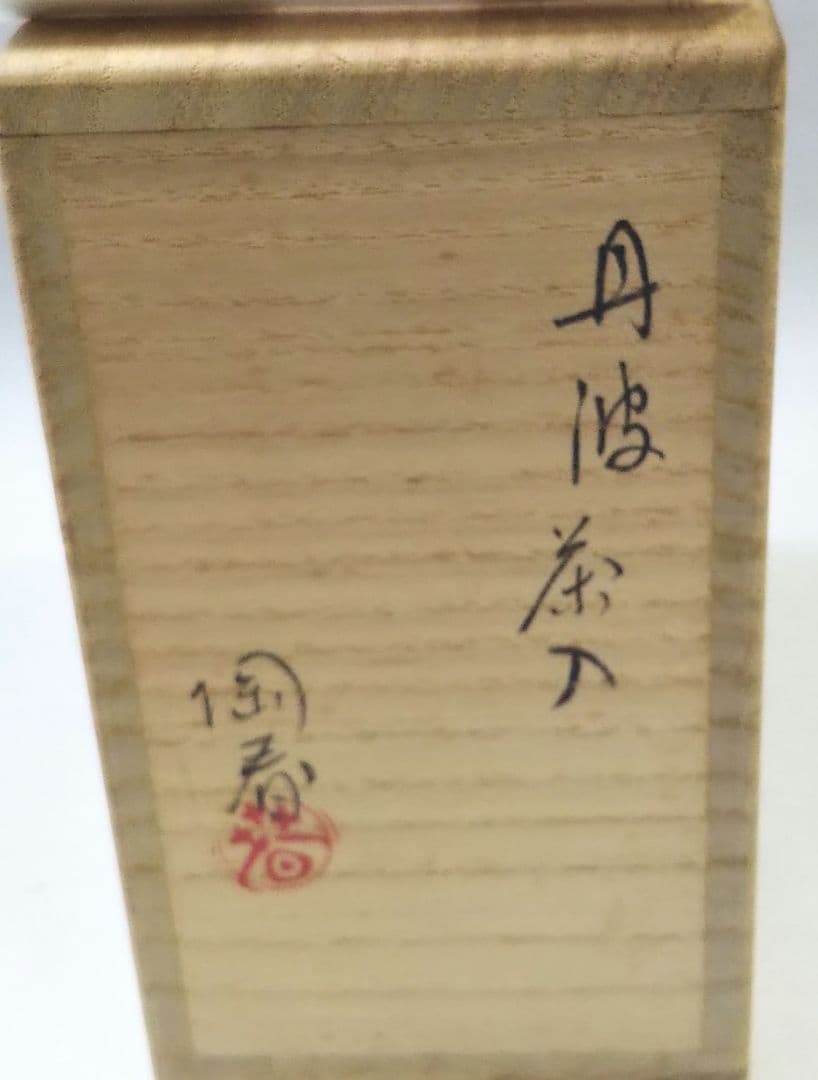 丹波茶入
陶春